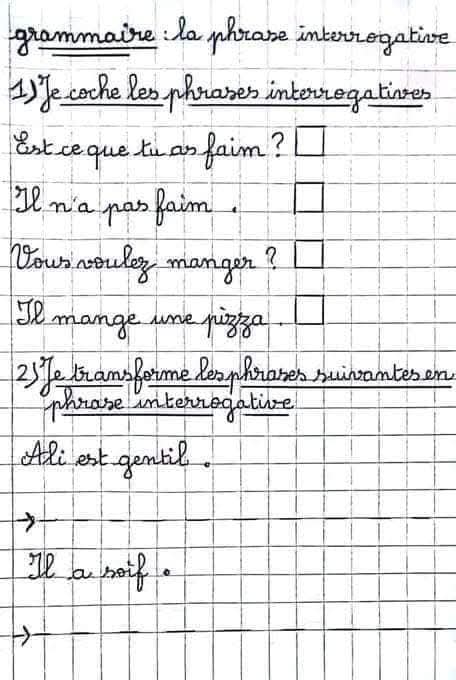 grammaire : la phrase interrogative
1) Je coche les phrases interrogatives
Est ce que tu as faim ?
Il n'a pas faim .
Vous voulez manger ?
Il mange une pizza .
2) Je transforme les phrases suivantes en
phrase interrogative
Ali est gentil .
→
Il a soif .
→